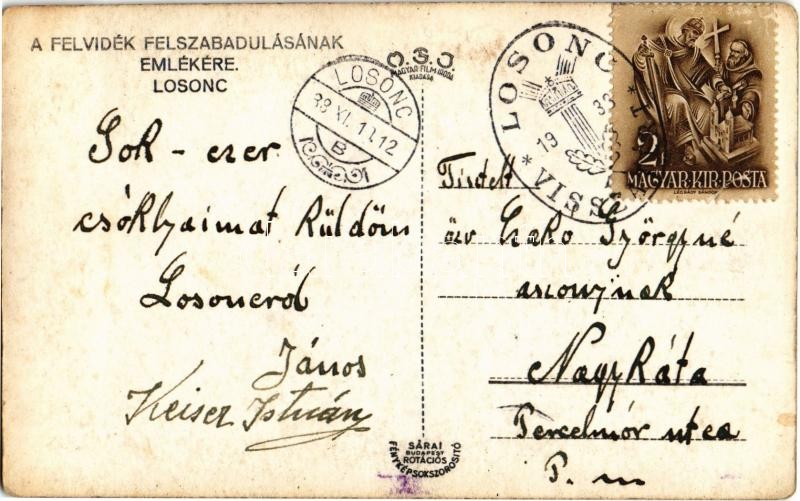 A FELVIDÉK FELSZABADULÁSÁNAK
EMLÉKÉRE.
LOSONC
O.S.O.
MAGYAR FILM IRODA
KIADÁSA
LOSONC
38 XI. 1 1.12
B
LOSONC
19 38
2
MAGYAR·KIR·POSTA
LÉGRÁDY SÁNDOR
Sok - ezer
csóklyaimat Küldöm
Losoncról
János
Keiser István
Tisdelt
özv Györgyné
asszonynak
NagyKáta
utca
P. m
SÁRAI
BUDAPEST
ROTÁCIÓS
FÉNYKÉPSOKSZOROSITÓ